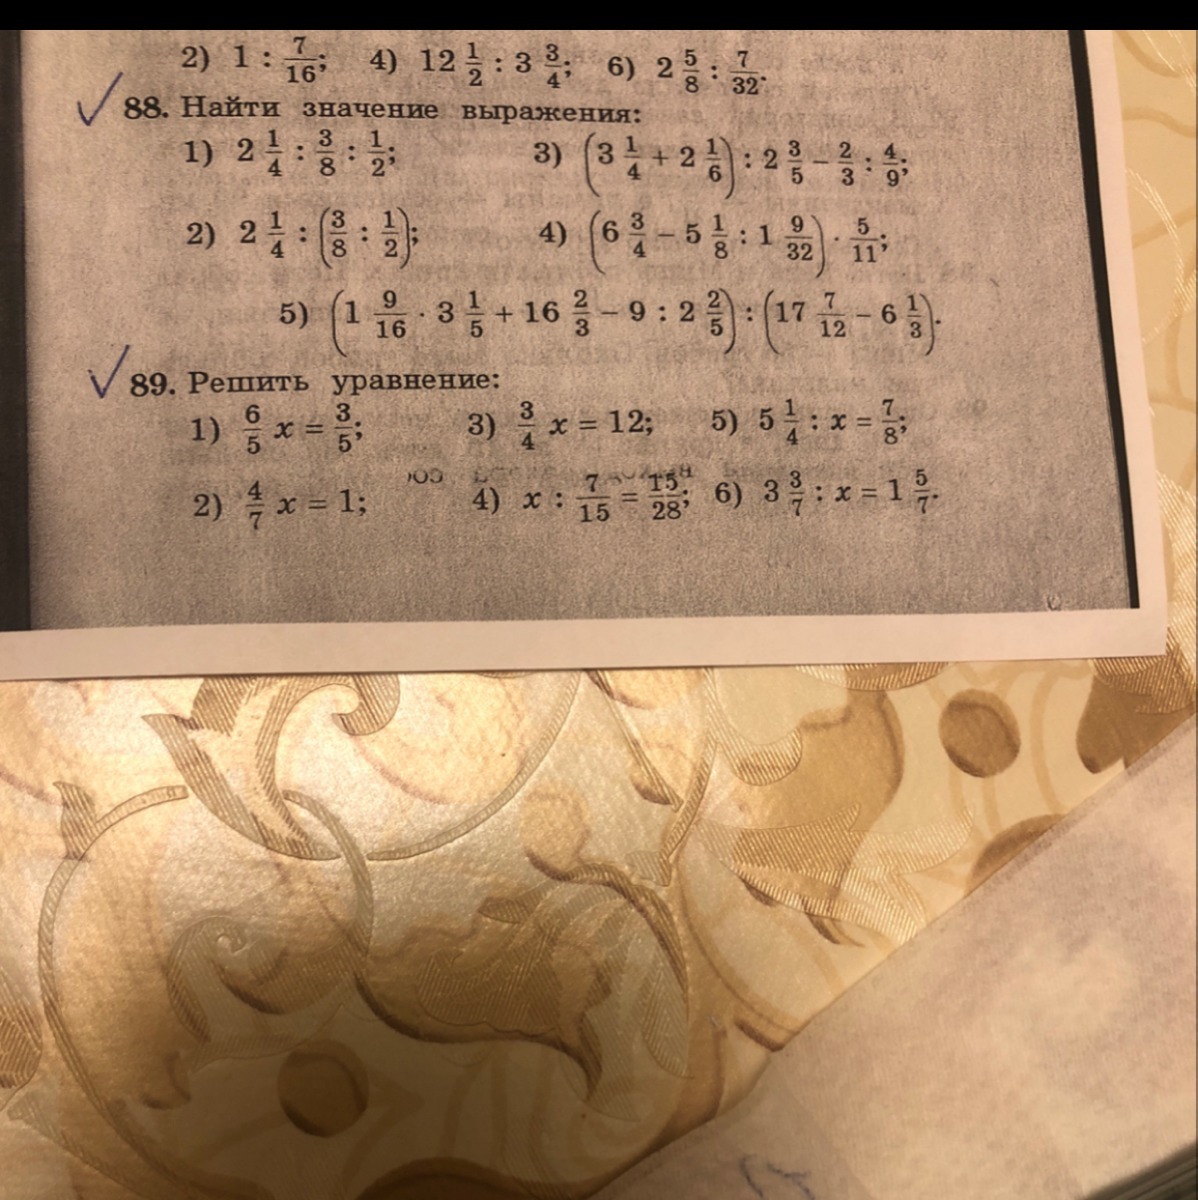 2) 1 : 7/16; 4) 12 1/2 : 3 3/4; 6) 2 5/8 : 7/32.
88. Найти значение выражения:
1) 2 1/4 : 3/8 : 1/2; 3) (3 1/4 + 2 1/6) : 2 3/5 − 2/3 : 4/9;
2) 2 1/4 : (3/8 : 1/2); 4) (6 3/4 − 5 1/8 : 1 9/32) · 5/11;
5) (1 9/16 · 3 1/5 + 16 2/3 − 9 : 2 2/5) : (17 7/12 − 6 1/3).
89. Решить уравнение:
1) 6/5 x = 3/5; 3) 3/4 x = 12; 5) 5 1/4 : x = 7/8;
2) 4/7 x = 1; 4) x : 7/15 = 15/28; 6) 3 3/7 : x = 1 5/7.